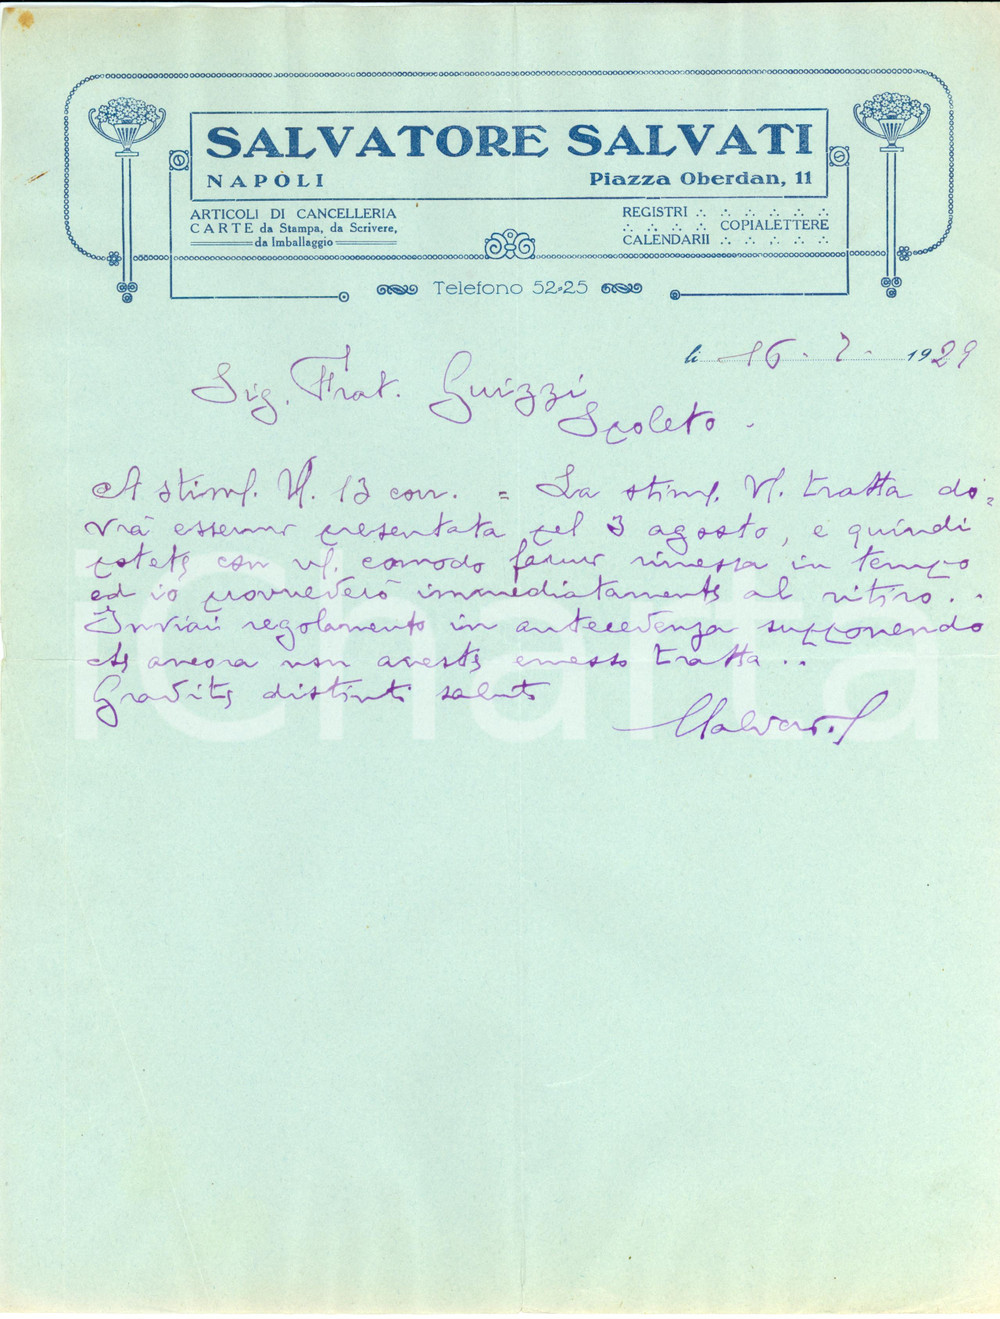 SALVATORE SALVATI
NAPOLI Piazza Oberdan, 11
ARTICOLI DI CANCELLERIA
CARTE da Stampa, da Scrivere,
da Imballaggio
REGISTRI
COPIALETTERE
CALENDARII
Telefono 52-25
li 16 - 7 - 1929
Sig. Frat. Guizzi
Spoleto .
A stim. Vs. 13 corr. = La stim. Vs. tratta do=
vrà essermi presentata pel 3 agosto, e quindi
potete con vs. comodo farmi rimessa in tempo
ed io provvederò immediatamente al ritiro . .
Inviai regolamento in antecedenza supponendo
che ancora non aveste emesso tratta . .
Gradite distinti saluti
SSalvati
iCharta